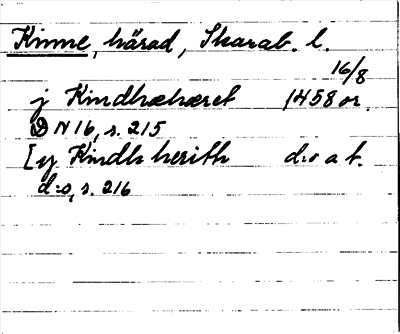 Kinne, härad, Skarab. l.
16/8
j Kindhæhæret 1458 or.
D N 16, s. 215
[y Kindh herith d:o a t.
d:o, s. 216